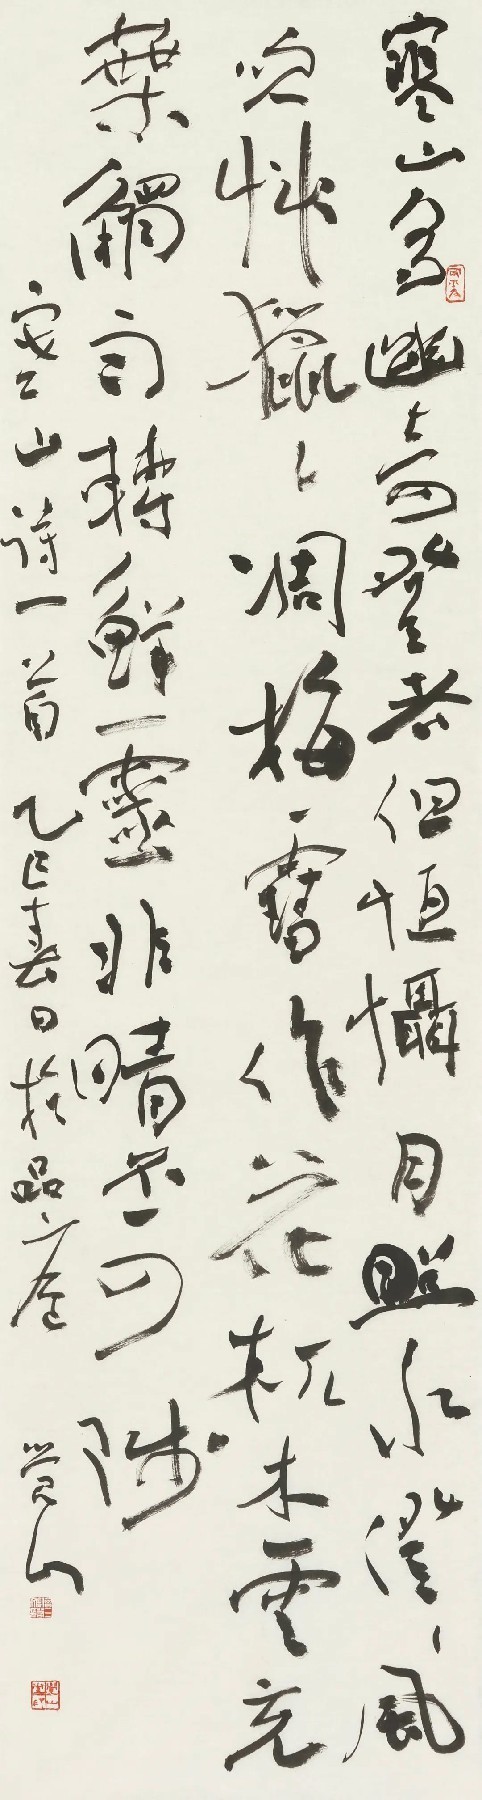 寒山多幽奇登者但恒懾月照水澄〻風
吹草獵〻凋梅雪作花杌木雲充
葉觸雨轉鮮靈非晴不可陟
寒山詩一首 乙巳春日於品 覺山